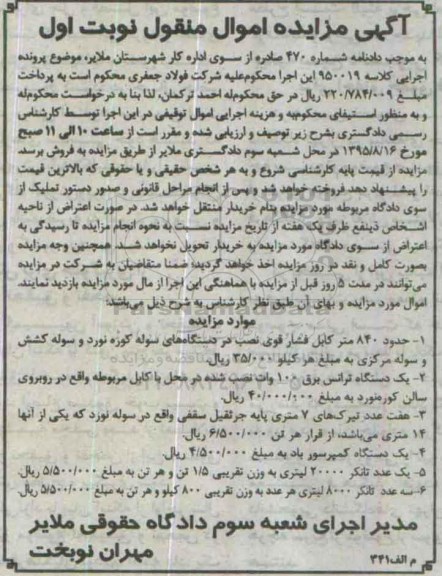 آگهی مزایده اموال منقول نوبت اول
به موجب دادنامه شماره ۴۷۰ صادره از سوی اداره کار شهرستان ملایر، موضوع پرونده
اجرایی کلاسه ۹۵۰۰۱۹ این اجرا محکوم‌علیه شرکت فولاد جعفری محکوم است به پرداخت
مبلغ ۲۲۰/۷۸۴/۰۰۹ ریال در حق محکوم‌له احمد ترکمان، لذا بنا به درخواست محکوم‌له
و به منظور استیفای محکوم‌به و هزینه اجرایی اموال توقیفی در این اجرا توسط کارشناس
رسمی دادگستری بشرح زیر توصیف و ارزیابی شده و مقرر است از ساعت ۱۰ الی ۱۱ صبح
مورخ ۱۳۹۵/۸/۱۶ در محل شعبه سوم دادگستری ملایر از طریق مزایده به فروش برسد.
مزایده از قیمت پایه کارشناسی شروع و به هر شخص حقیقی و یا حقوقی که بالاترین قیمت
را پیشنهاد دهد فروخته خواهد شد و پس از انجام مراحل قانونی و صدور دستور تملیک از
سوی دادگاه مربوطه مورد مزایده بنام خریدار منتقل خواهد شد. در صورت اعتراض از ناحیه
اشخاص ذینفع ظرف یک هفته از تاریخ مزایده نسبت به نحوه انجام مزایده تا رسیدگی به
اعتراض از سوی دادگاه مورد مزایده به خریدار تحویل نخواهد شد. همچنین وجه مزایده
بصورت کامل و نقد در روز مزایده اخذ خواهد گردید؛ ضمنا متقاضیان به شرکت در مزایده
می‌توانند در مدت ۵ روز قبل از مزایده با هماهنگی این اجرا از مال مورد مزایده بازدید نمایند.
اموال مورد مزایده و بهای آن طبق نظر کارشناس به شرح ذیل می‌باشد:
موارد مزایده
۱- حدود ۸۴۰ متر کابل فشار قوی نصب در دستگاه‌های سوله کوره نورد و سوله کشش
و سوله مرکزی به مبلغ هر کیلو ۳۵/۰۰۰ ریال.
۲- یک دستگاه ترانس برق ۱۰۰۰ وات نصب شده در محل با کابل مربوطه واقع در روبروی
سالن کوره‌نورد به مبلغ ۴۰/۰۰۰/۰۰۰ ریال.
۳- هفت عدد تیرک‌های ۷ متری پایه جرثقیل سقفی واقع در سوله نورد که یکی از آنها
۱۴ متری می‌باشد، از قرار هر تن ۶/۵۰۰/۰۰۰ ریال.
۴- یک دستگاه کمپرسور باد به مبلغ ۴/۵۰۰/۰۰۰ ریال.
۵- یک عدد تانکر ۲۰۰۰۰ لیتری به وزن تقریبی ۱/۵ تن و هر تن به مبلغ ۵/۵۰۰/۰۰۰ ریال.
۶- سه عدد تانکر ۸۰۰۰ لیتری هر عدد به وزن تقریبی ۸۰۰ کیلو و هر تن به مبلغ ۵/۵۰۰/۰۰۰ ریال.
مدیر اجرای شعبه سوم دادگاه حقوقی ملایر
مهران نوبخت
م الف ۳۴۱